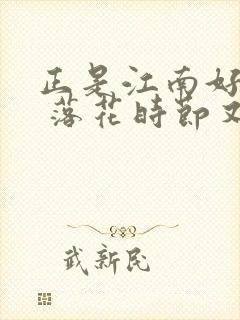 正是江南好
落花时节又
武新民